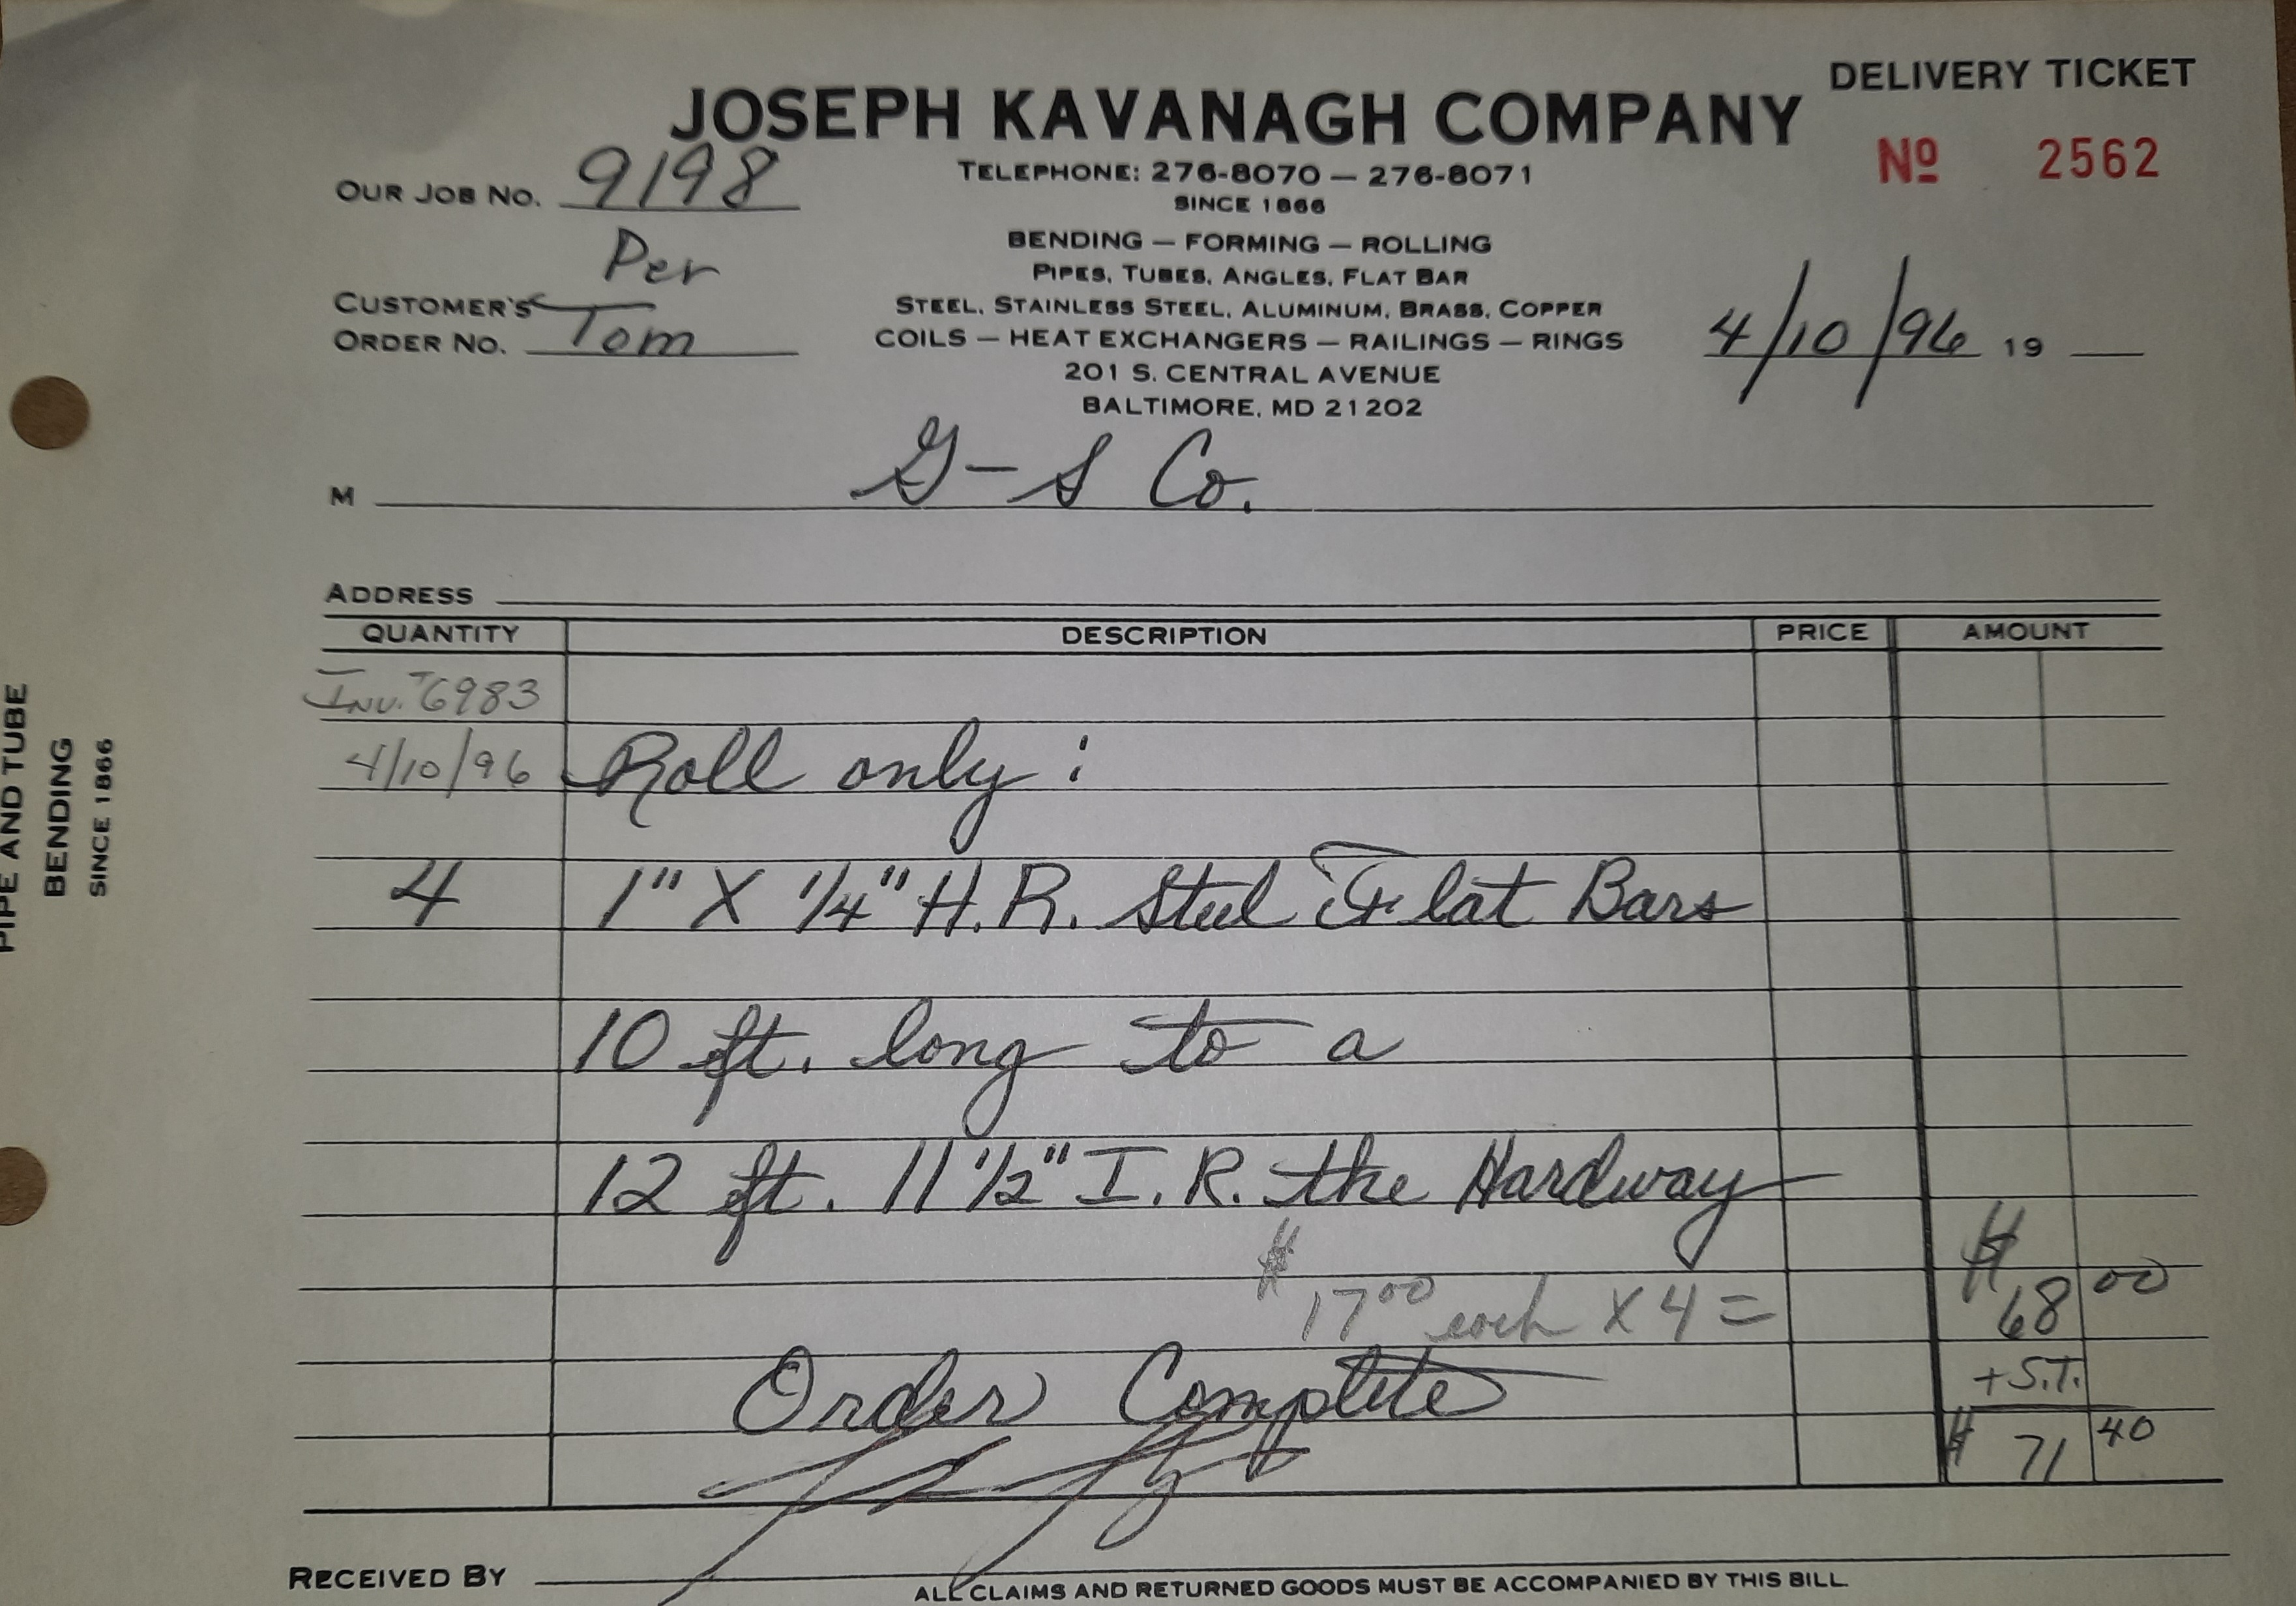 DELIVERY TICKET
JOSEPH KAVANAGH COMPANY
Nº 2562
OUR JOB NO. 9198
TELEPHONE: 276-8070 — 276-8071
SINCE 1866
BENDING — FORMING — ROLLING
PIPES, TUBES, ANGLES, FLAT BAR
STEEL, STAINLESS STEEL, ALUMINUM, BRASS, COPPER
COILS — HEAT EXCHANGERS — RAILINGS — RINGS
201 S. CENTRAL AVENUE
BALTIMORE, MD 21202
Per
CUSTOMER'S
ORDER NO. Tom
4/10/96 19
M G-S Co.
ADDRESS
QUANTITY DESCRIPTION PRICE AMOUNT
Inv. #6983
4/10/96 Roll only:
4 1" X 1/4" H.R. Steel Flat Bars
10 ft. long to a
12 ft. 11 1/2" I.R. the Hardway
$17.00 each X 4 = $68 00
Order Complete +S.T.
$71 40
RECEIVED BY
ALL CLAIMS AND RETURNED GOODS MUST BE ACCOMPANIED BY THIS BILL
PIPE AND TUBE
BENDING
SINCE 1866